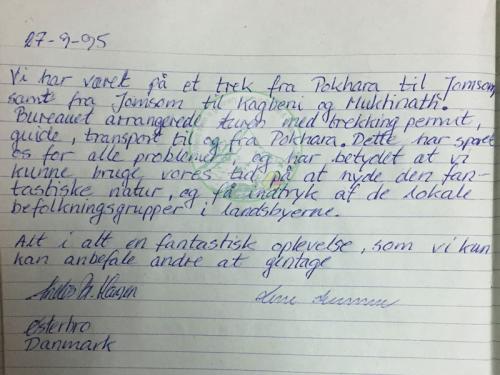 27-9-95
Vi har været på et trek fra Pokhara til Jomsom,
samt fra Jomsom til Kagbeni og Muktinath.
Bureauet arrangerede turen med trekking permit,
guide, transport til og fra Pokhara. Dette har sparet
os for alle problemer, og har betydet at vi
kunne bruge vores tid på at nyde den fan-
tastiske natur, og få indtryk af de lokale
befolkningsgrupper i landsbyerne.
Alt i alt en fantastisk oplevelse, som vi kun
kan anbefale andre at gentage
Østerbro
Danmark